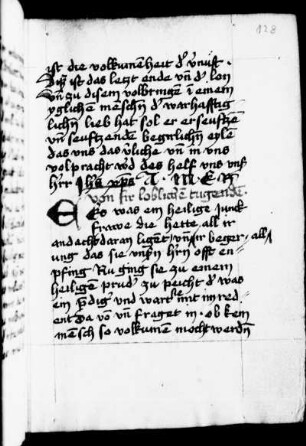 ist die volkumenheit d' v'nuft
Diß ist das letzt ende vn̄ d' lon
vn̄ zu disem volbringē ī einem
yglichen mēschn̄ d' warhafftig
lichn̄ lieb hat sol er erseuftzē
vn̄ seuftzende begirlichn̄ eyle
das vns das vn̄ in vns
volpracht w'd des helf vns vns'
herr Jhūs xp̄s A M E N
von fir loblichē tugende
Es was ein heilige junck
frawe die hette all ir
andacht daran ligēt vn̄ ir beger
ung das sie vnsn̄ hrn̄ offt en
pfing Nu ging sie zu einem
heiligen prud' zu peicht d' was
ein p̄dig' vnd wart sie mit im red
ent da vō vn̄ fraget in ob kein
mēsch so volkumē mocht werdn̄